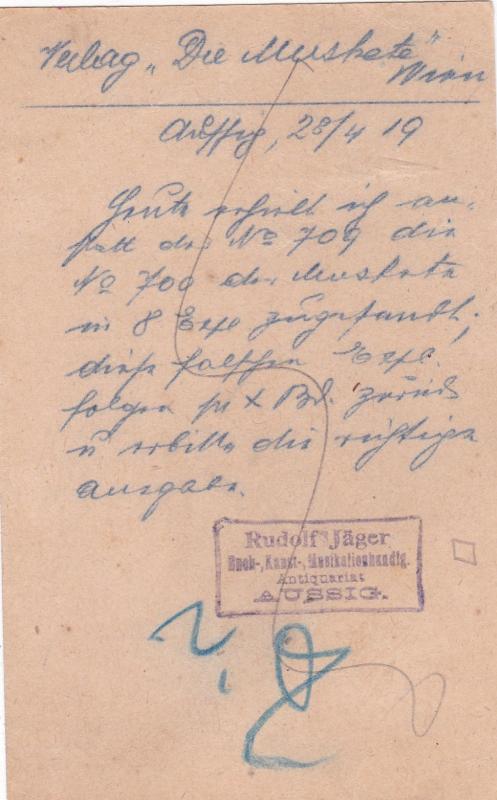 Verlag „Die Muskete"
Wien
Aussig, 28/4 19
Heute erhielt ich an-
statt der No 709 die
No 700 der Muskete
in 8 Expl zugesandt;
diese falschen Expl.
folgen pr X Bd. zurück
u erbitte die richtige
Ausgabe.
Rudolf Jäger
Buch-, Kunst-, Musikalienhandlg.
Antiquariat
AUSSIG.